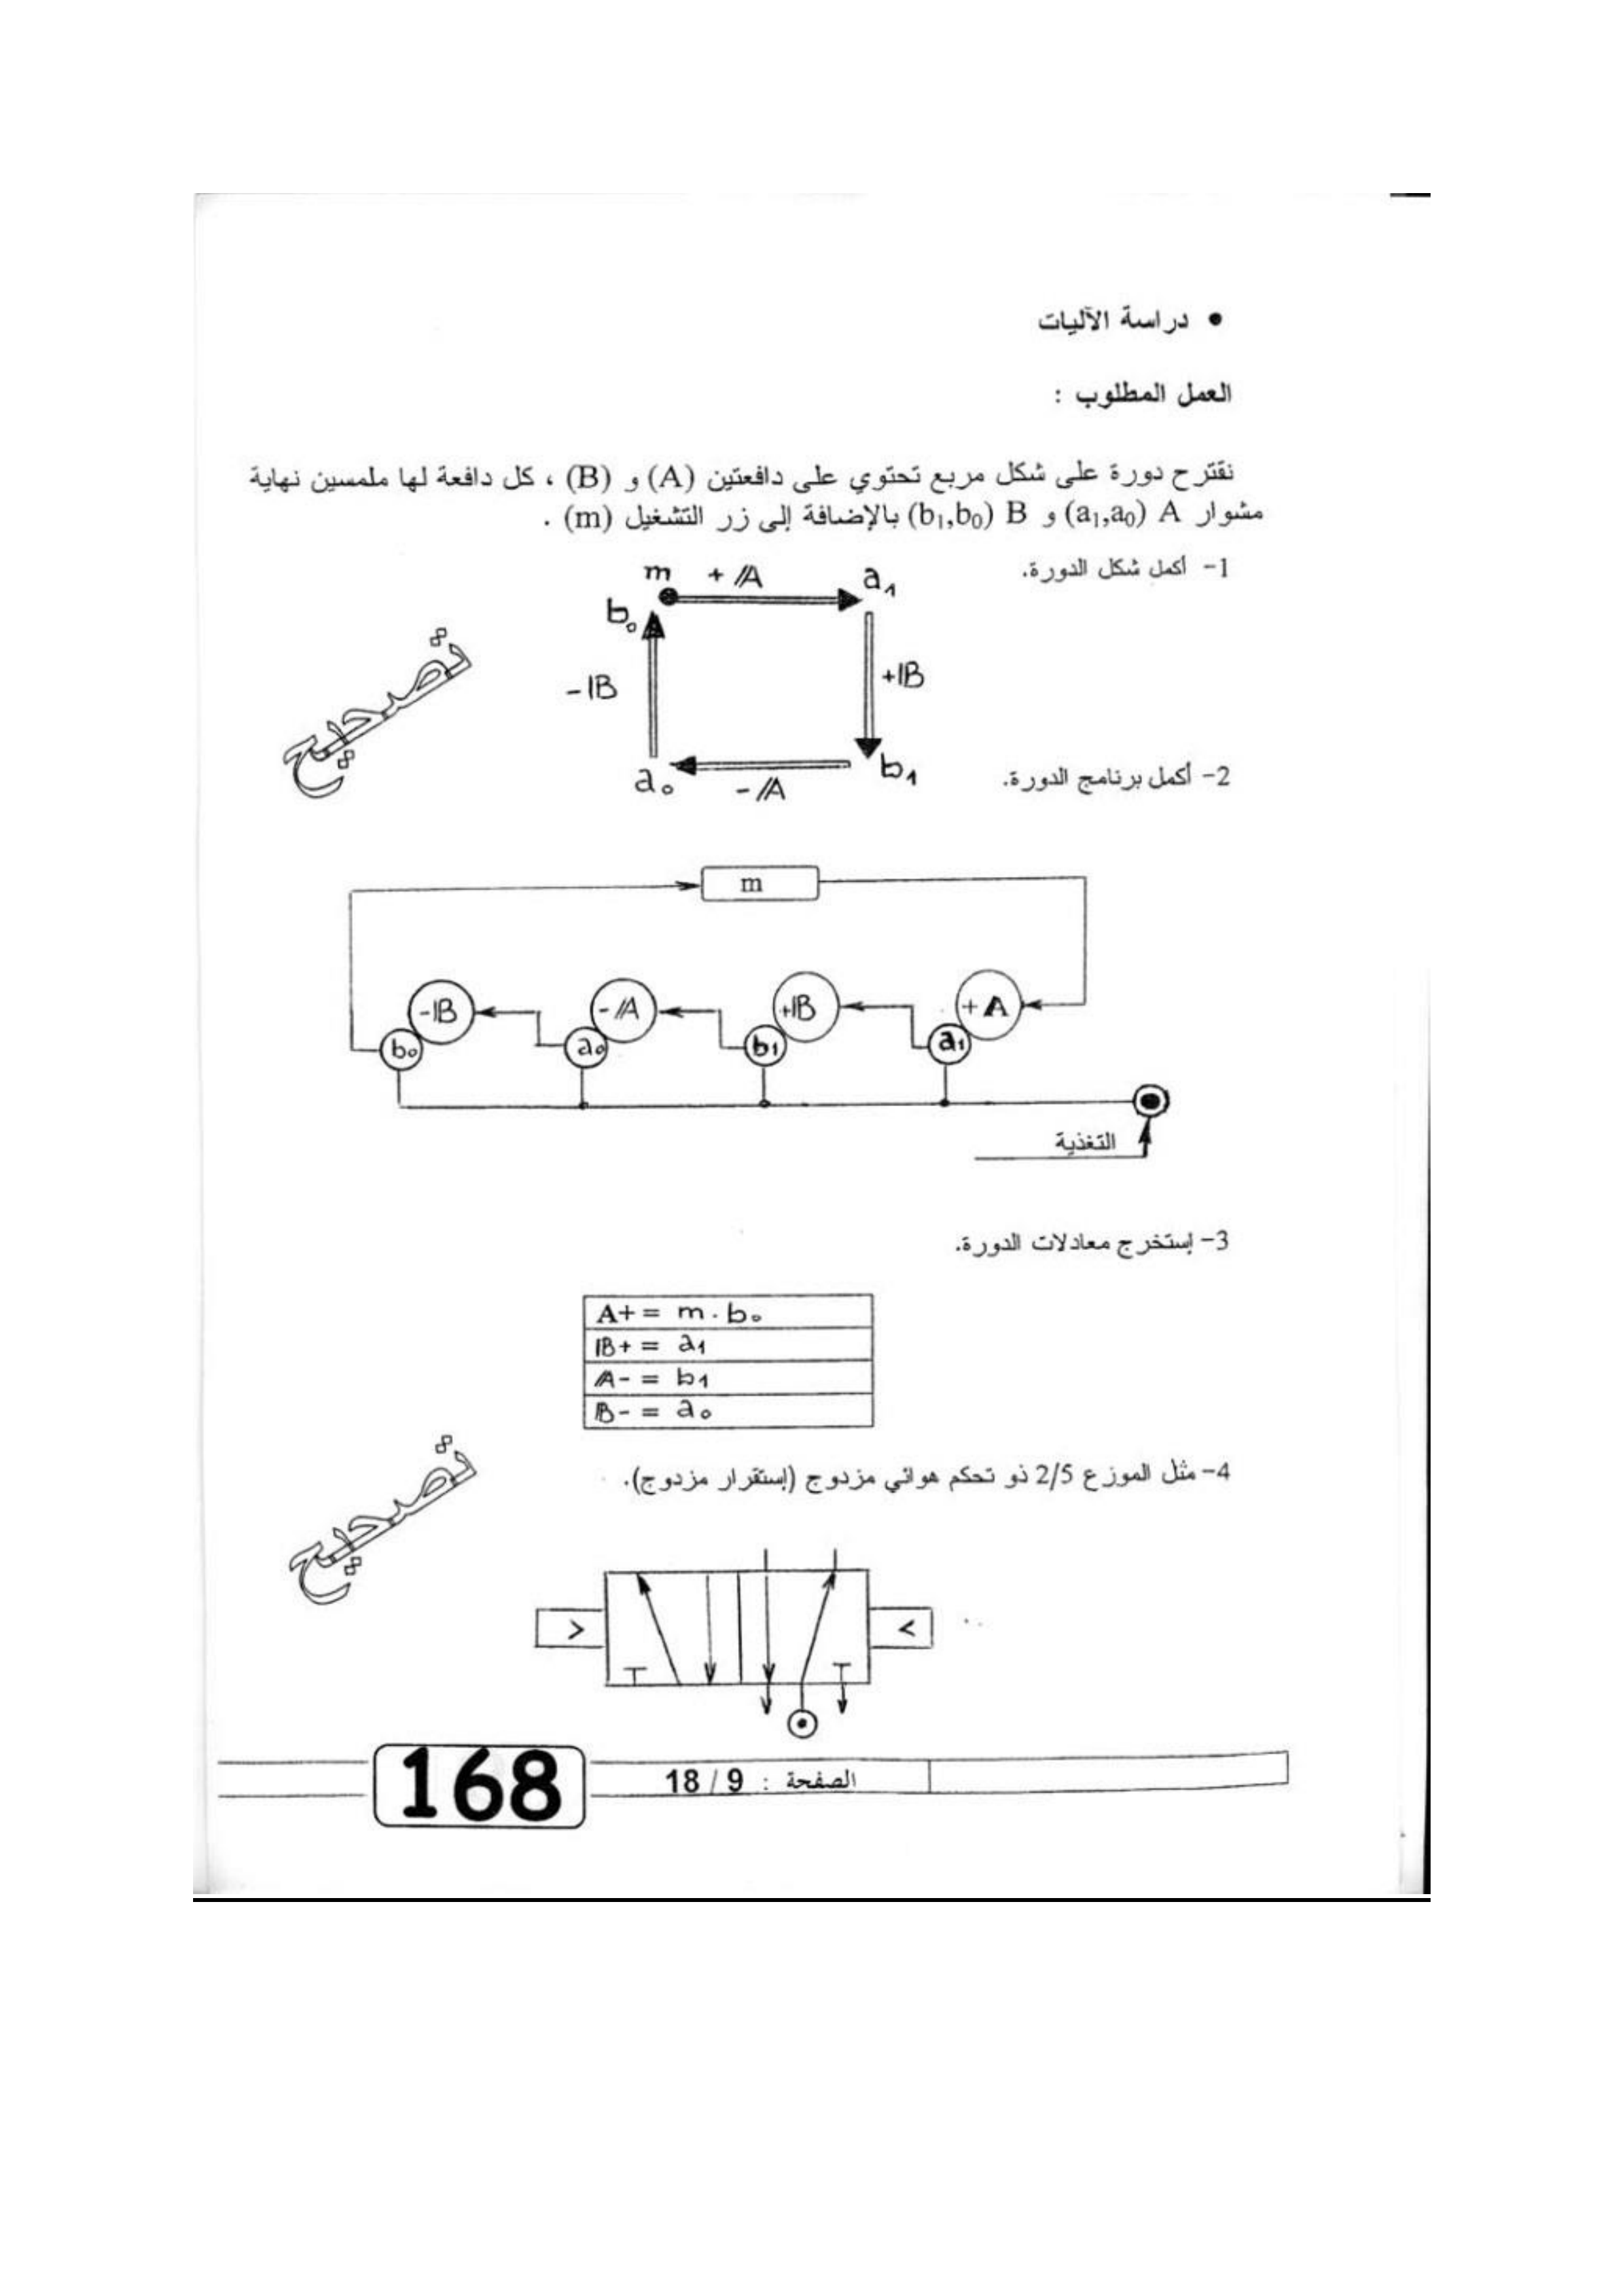 • دراسة الآليات
العمل المطلوب :
نقترح دورة على شكل مربع تحتوي على دافعتين (A) و (B) ، كل دافعة لها ملمسين نهاية
مشوار A (a₁,a₀) و B (b₁,b₀) بالإضافة إلى زر التشغيل (m) .
1- أكمل شكل الدورة.
m + A a₁
b₀
تصحيح
- B +B
a₀ - A b₁
2- أكمل برنامج الدورة.
m
-B -A +B +A
b₀ a₀ b₁ a₁
التغذية
3- إستخرج معادلات الدورة.
A+ = m . b₀
B+ = a₁
A- = b₁
B- = a₀
تصحيح
4- مثل الموزع 2/5 ذو تحكم هوائي مزدوج (إستقرار مزدوج).
> <
168
الصفحة : 9 / 18